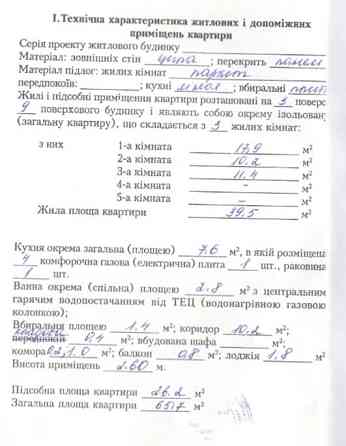 I. Технічна характеристика житлових і допоміжних
приміщень квартири
Серія проекту житлового будинку
Матеріал: зовнішніх стін цегла; перекрить панелі
Матеріал підлог: жилих кімнат паркет
передпокоїв: ; кухні лінол; вбиральні
Жилі і підсобні приміщення квартири розташовані на 3 поверсі
9 поверхового будинку і являють собою окрему ізольовану
(загальну квартиру), що складається з 3 жилих кімнат:
з них 1-а кімната 17,9 м²
2-а кімната 10.2 м²
3-а кімната 11.4 м²
4-а кімната - м²
5-а кімната - м²
Жила площа квартири 39,5 м²
Кухня окрема загальна (площею) 7.6 м², в якій розміщена
4 комфорочна газова (електрична) плита 1 шт., раковина
1 шт.
Ванна окрема (спільна) площею 2.8 м² з центральним
гарячим водопостачанням від ТЕЦ (водонагрівною газовою
колонкою);
Вбиральня площею 1.4 м²; коридор 10.2 м²;
передпокій 0,4 м²; вбудована шафа м²;
комора 1.0 м²; балкон 0,8 м²; лоджія 1.8 м²
Висота приміщень 2.60 м.
Підсобна площа квартири 26.2 м²
Загальна площа квартири 65.7 м²